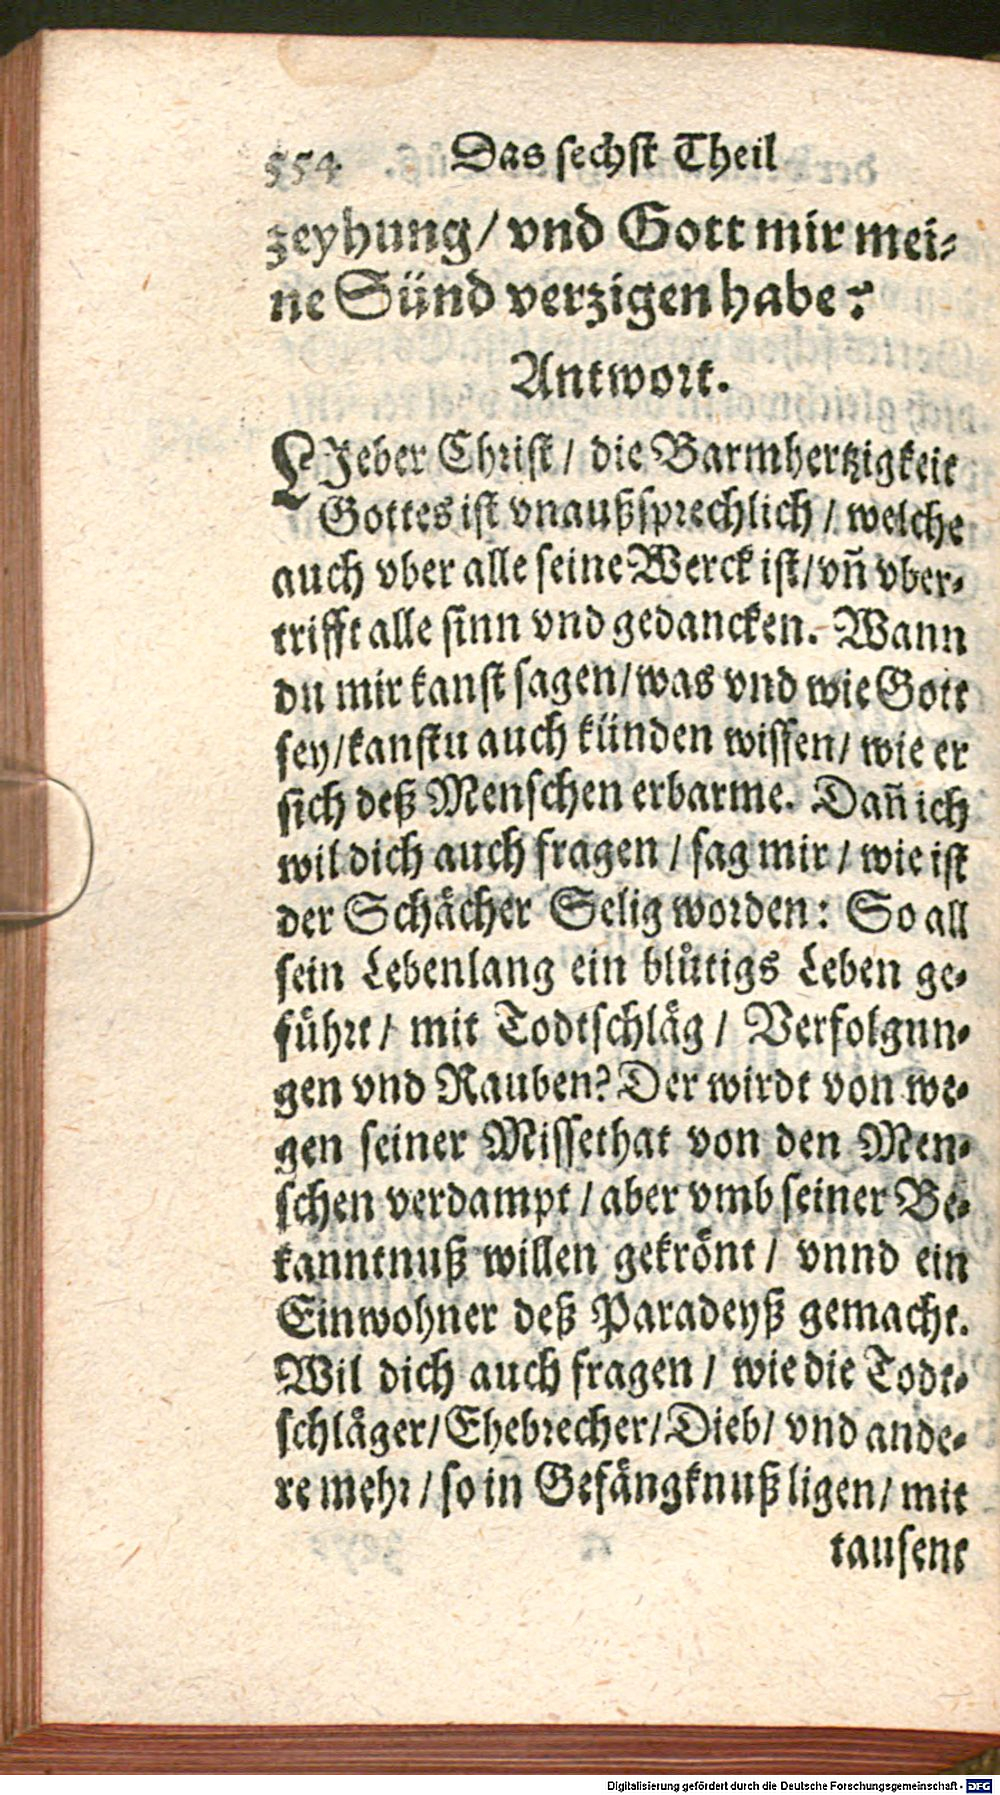 554 Das sechst Theil
zeyhung/ vnd Gott mir mei-
ne Sünd verzigen habe?
Antwort.
LJeber Christ/ die Barmhertzigkeit
Gottes ist vnaußsprechlich/ welche
auch vber alle seine Werck ist/ vñ vber-
trifft alle sinn vnd gedancken. Wann
du mir kanst sagen/ was vnd wie Gott
sey/ kanstu auch künden wissen/ wie er
sich deß Menschen erbarme. Dañ ich
wil dich auch fragen/ sag mir/ wie ist
der Schächer Selig worden: So all
sein Lebenlang ein blůtigs Leben ge-
führt/ mit Todtschläg/ Verfolgun-
gen vnd Rauben? Der wirdt von we-
gen seiner Missethat von den Men-
schen verdampt/ aber vmb seiner Be-
kanntnuß willen gekrönt/ vnnd ein
Einwohner deß Paradeyß gemacht.
Wil dich auch fragen/ wie die Todt-
schläger/ Ehebrecher/ Dieb/ vnd ande-
re mehr/ so in Gefängknuß ligen/ mit
tausent
Digitalisierung gefördert durch die Deutsche Forschungsgemeinschaft - DFG